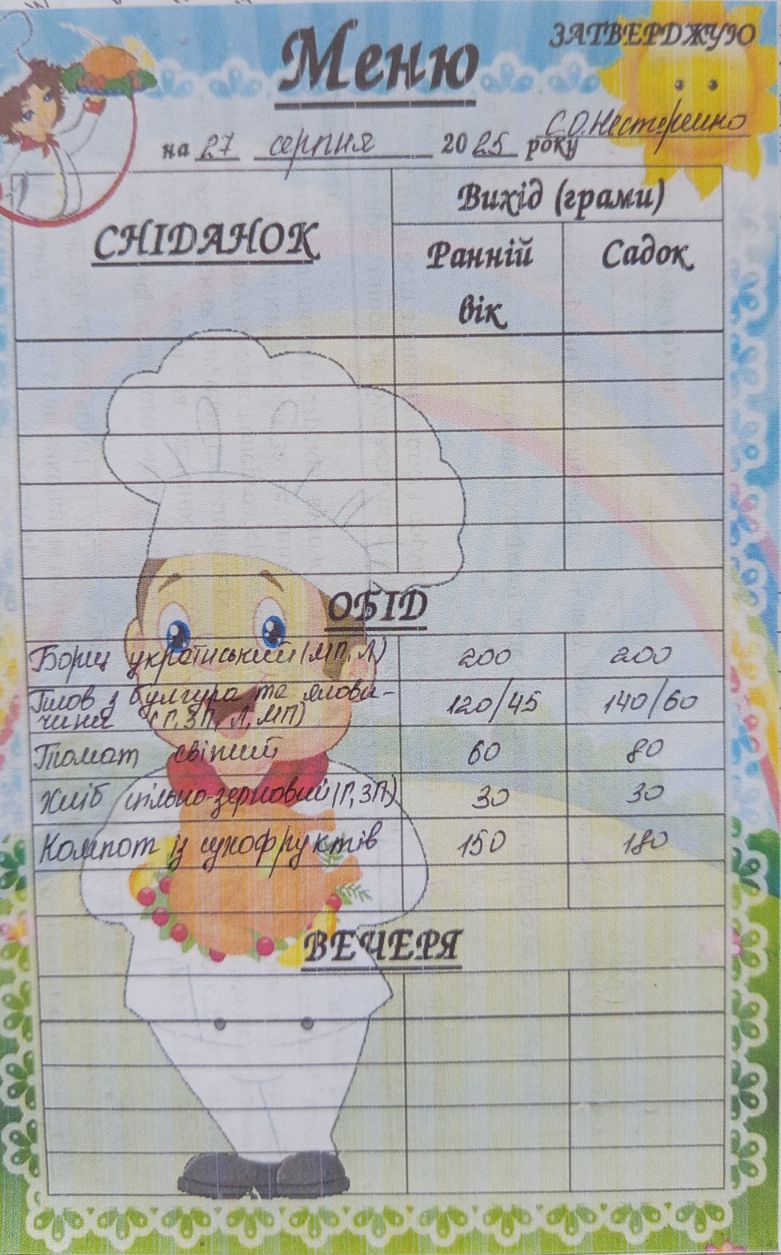 ЗАТВЕРДЖУЮ
Меню
С.О.Нестеренко
на 27 серпня 2025 року
СНІДАНОК
Вихід (грами)
Ранній вік
Садок
ОБІД
Борщ український (МП, Л) 200 200
Плов з булгура та ялови-
чини (Г, ЗП, Л, МП) 120/45 140/60
Томат свіжий 60 80
Хліб цільно-зерновий (Г, ЗП) 30 30
Компот із сухофруктів 150 180
ВЕЧЕРЯ